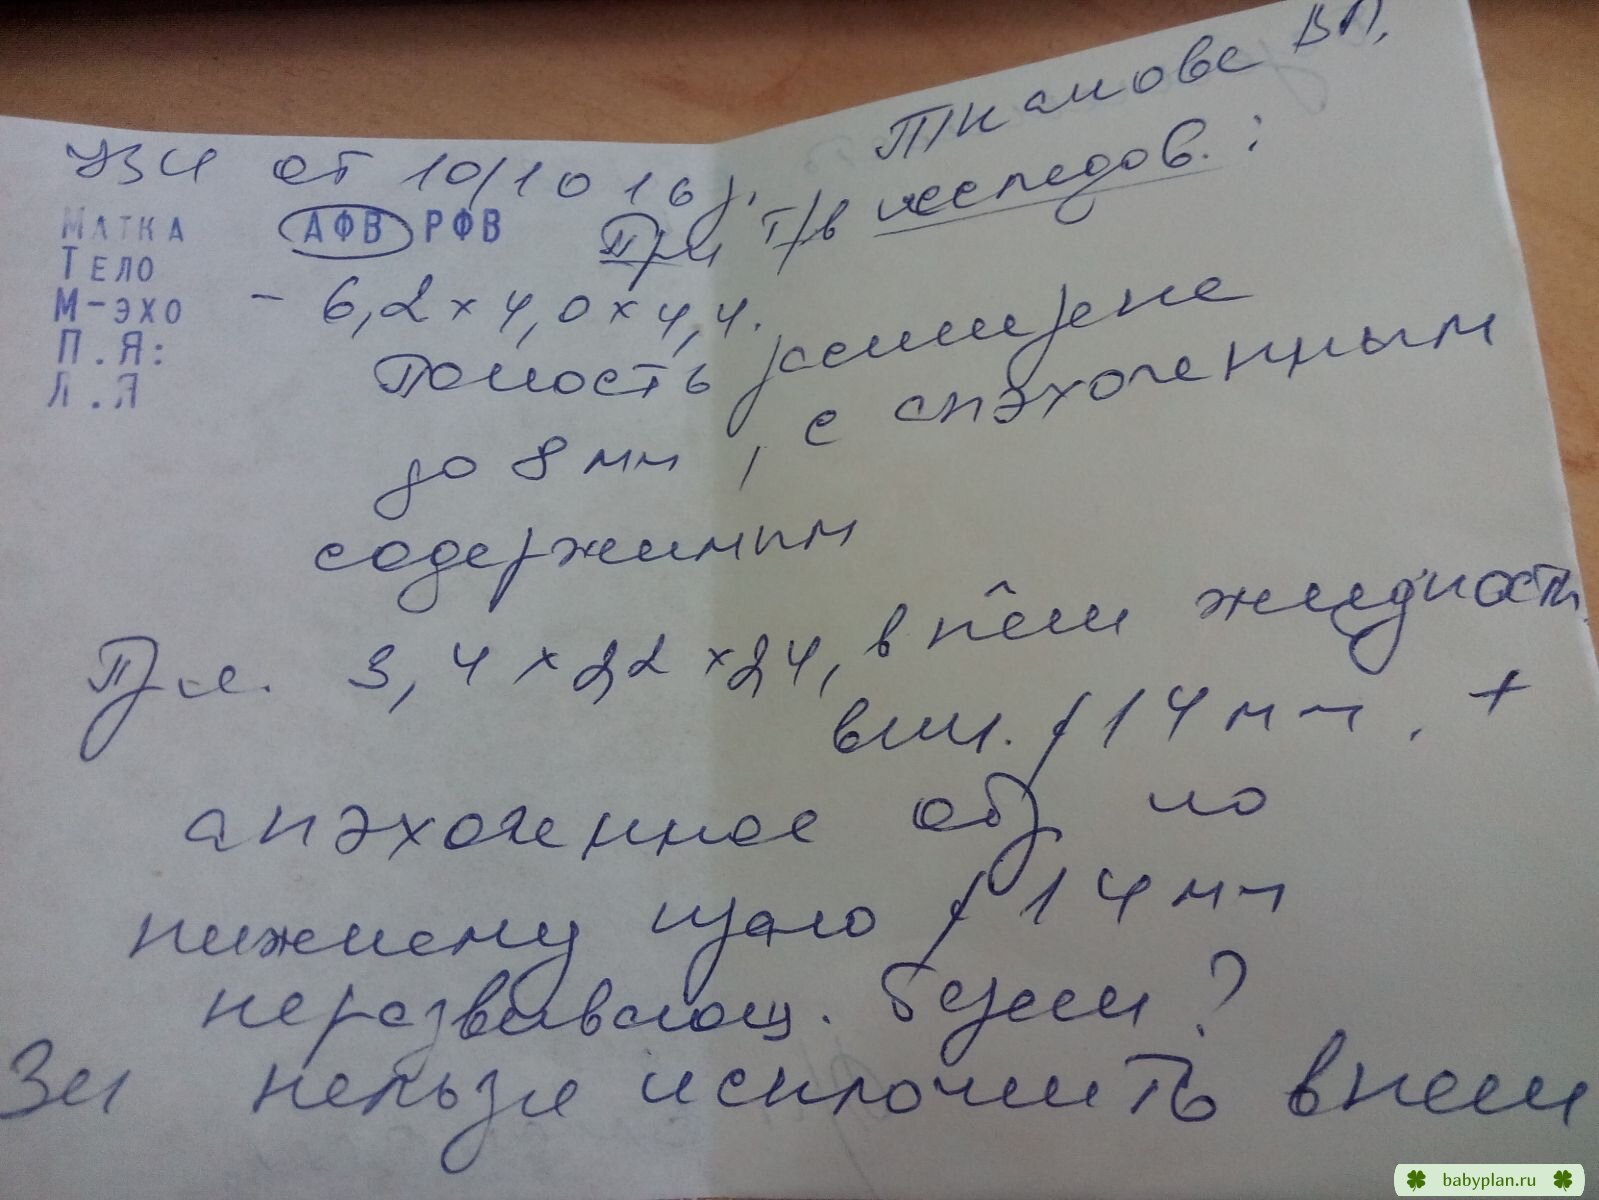 ВП,
УЗИ от 10/10 16 г.
При т/в исследов. :
МАТКА АФВ РФВ
ТЕЛО
М-ЭХО - 6,2 х 4,0 х 4,4.
П.Я:
Л.Я
Полость расширена
до 8 мм, с анэхогенным
содержимым
Пр. я. 3,4 х 22 х 24, в нём жидкостн
вкл. ∮ 14 мм. +
анэхогенное обр по
нижнему краю ∮ 14 мм
неразвивающ. берем ?
Зкл нельзя исключить внем
babyplan.ru